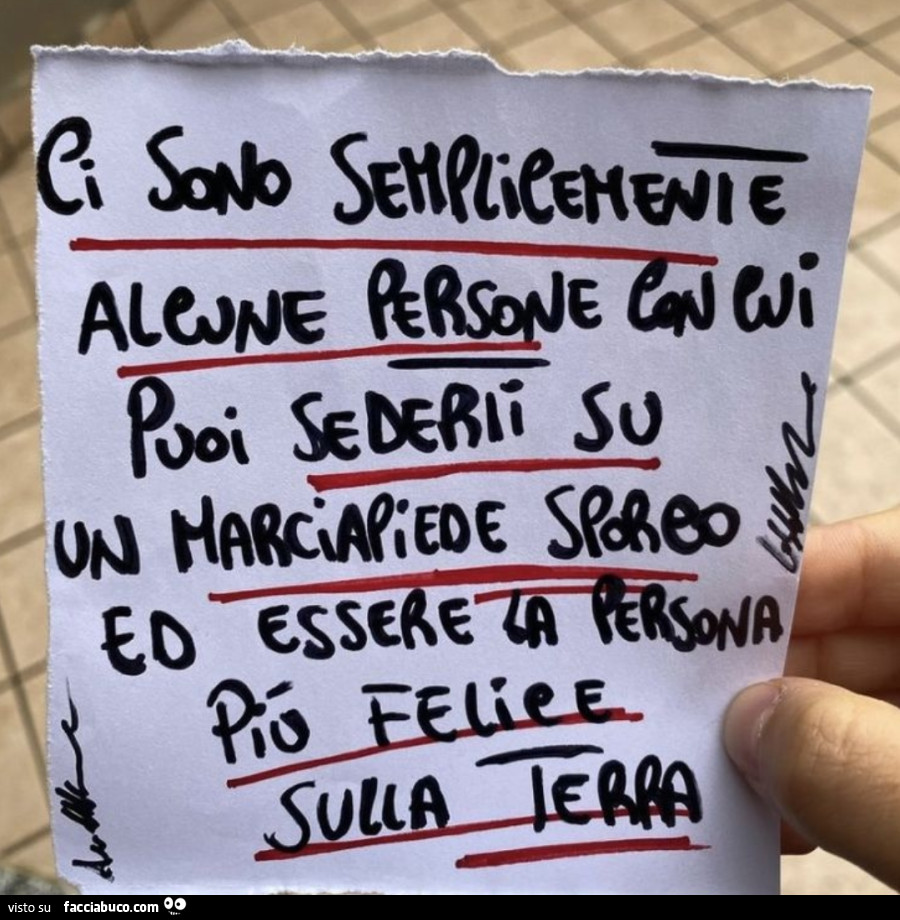 Ci SONO SEMPLiCEMENTE
ALCUNE PERSONE CON CUi
PUOi SEDERTi SU
UN MARCiAPiEDE SPORCO
ED ESSERE LA PERSONA
Più FELiCE
SULLA TERRA
visto su facciabuco.com